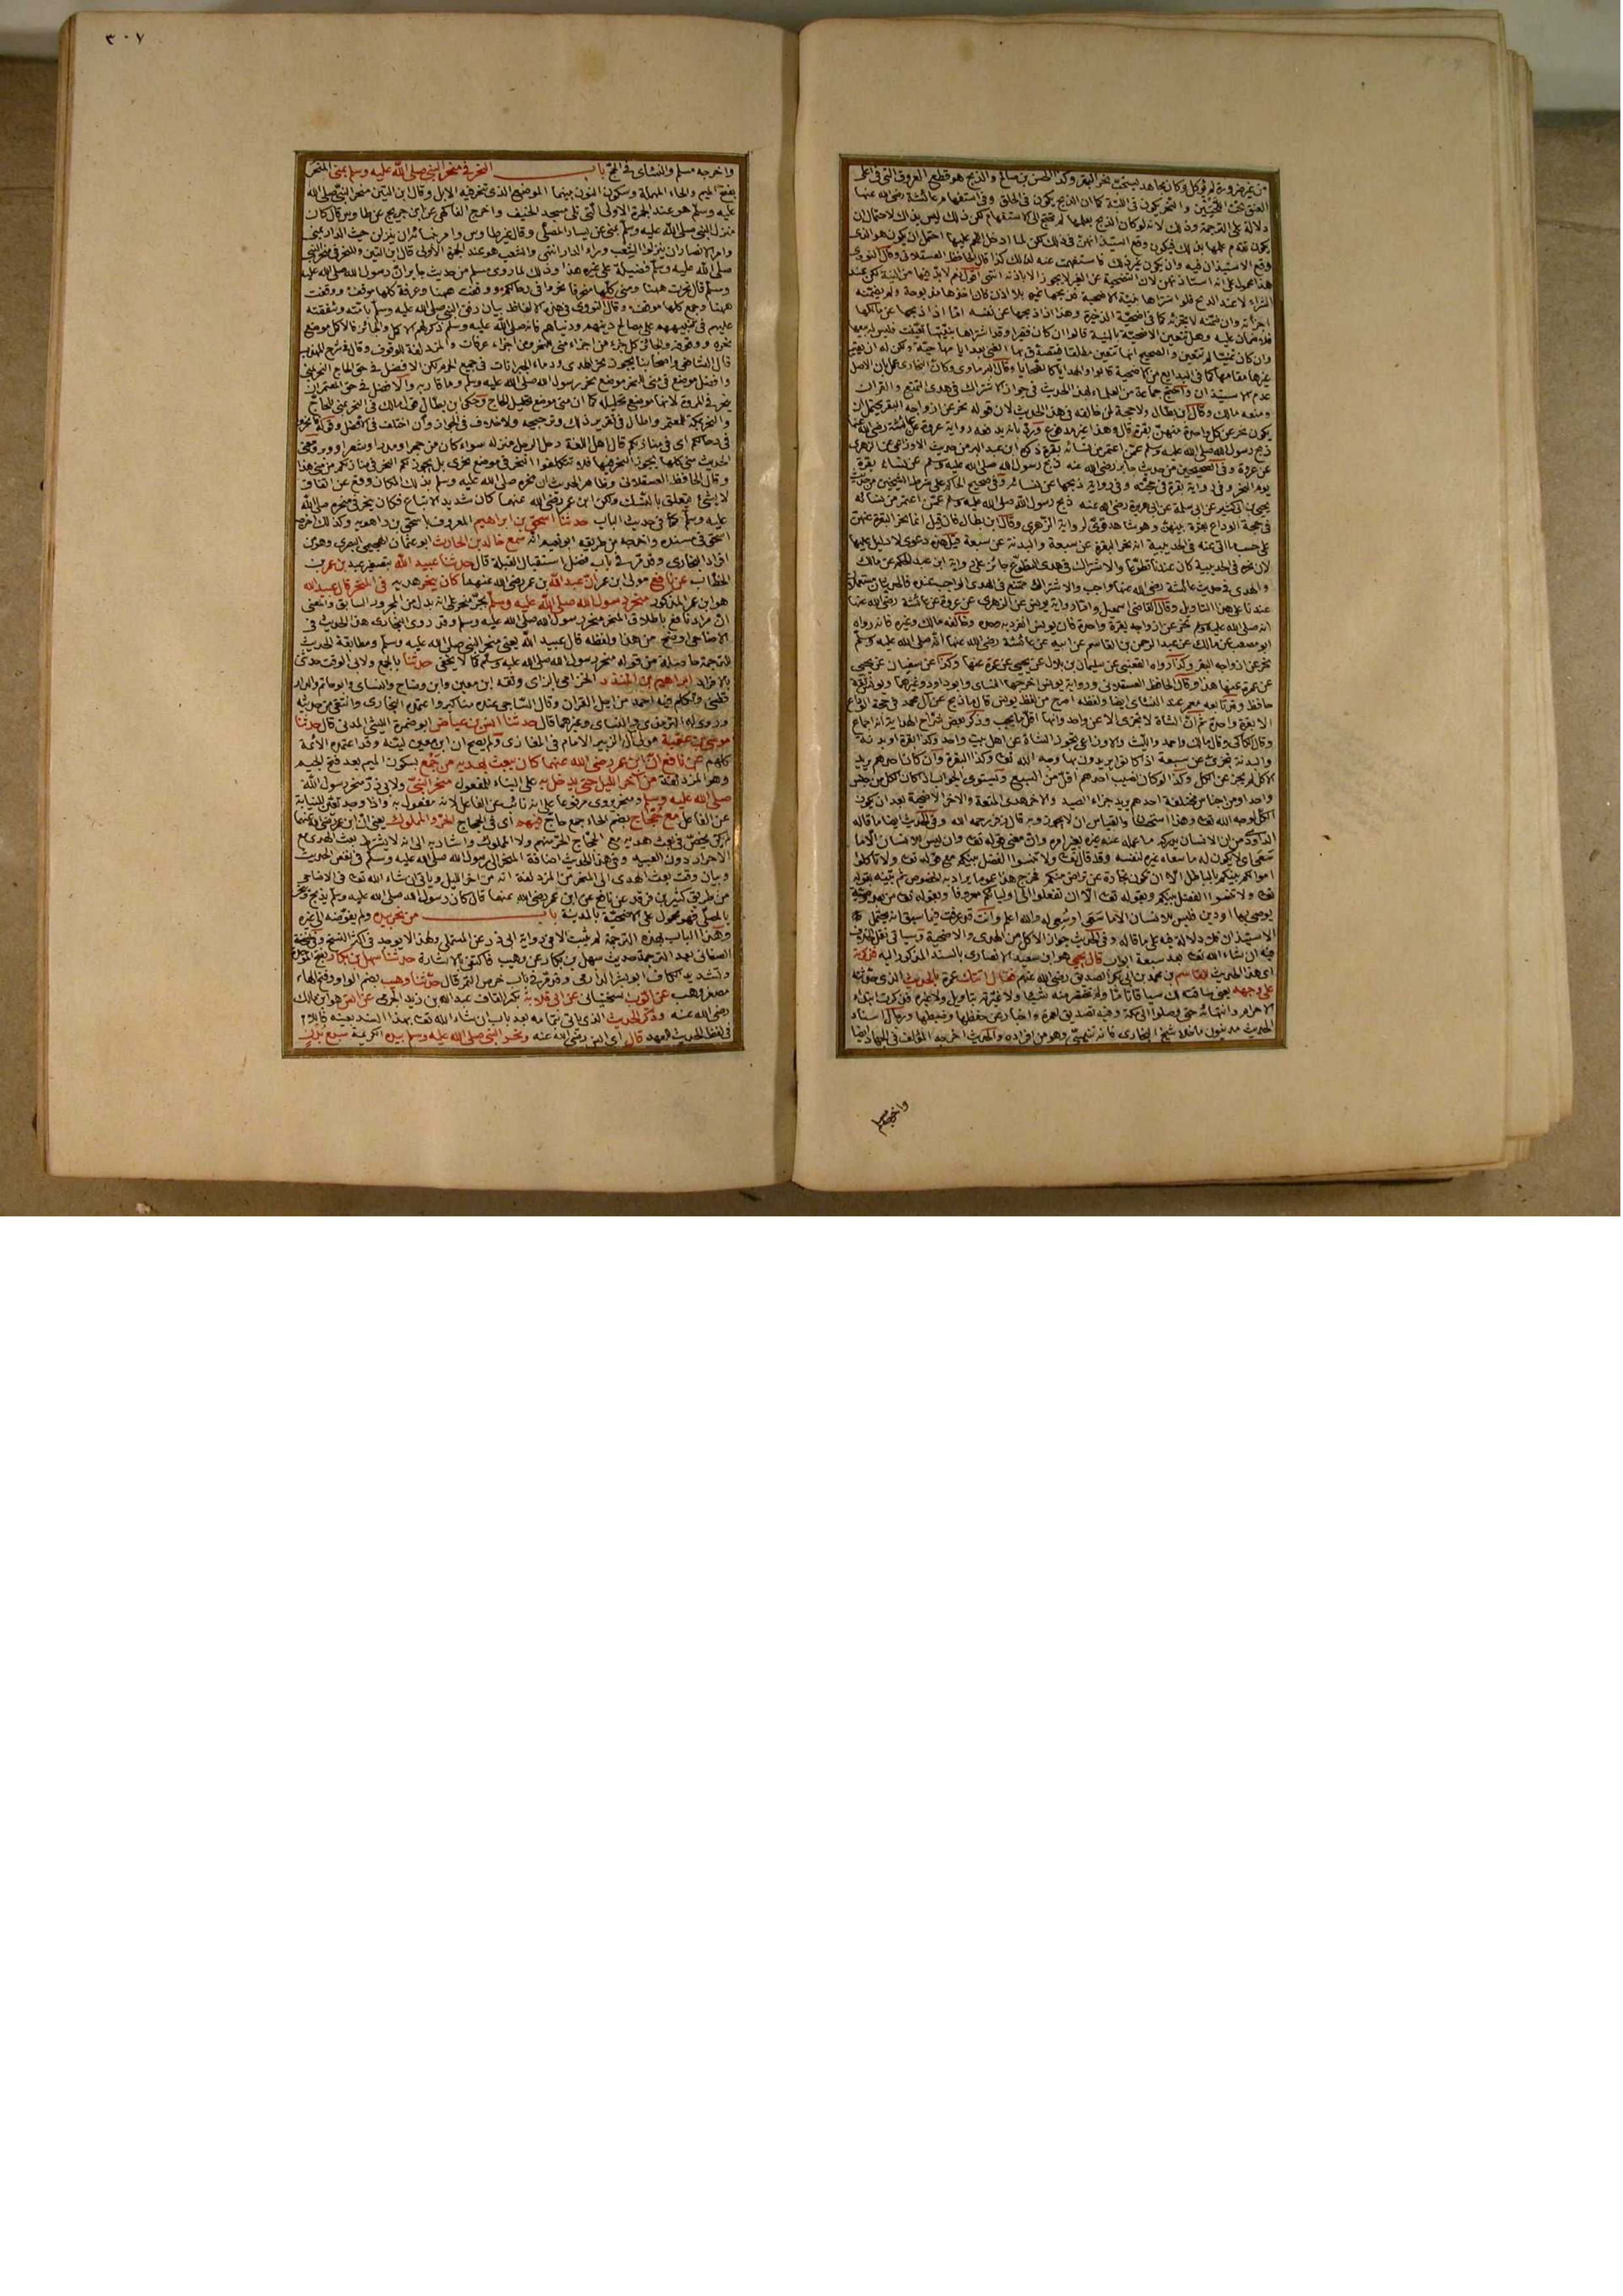 من غير ضرورة لم تؤكل وكان مجاهد يستحب نحر البقر وكذا الحسن بن صالح والذبح هو قطع العروق التي في اعلى
العنق تحت اللحيين والنحر يكون في اللبة كما ان الذبح يكون في الحلق وفي استفهام عائشة رضي الله عنها
دلالة على الترجمة وذلك لانه لو كان الذبح بعلمها لم تحتج الى الاستفهام لكن ذلك ليس بذلك لاحتمال ان
يكون تقدم علمها بذلك فيكون وقع استيذانهن في ذلك لكن لما ادخل اللحم عليها احتمل ان يكون هو الذي
وقع الاستيذان فيه وان يكون غير ذلك فاستفهمت عنه لذلك كذا قال الحافظ العسقلاني وقال النووي
هذا محمول على انه استأذنهن لان التضحية عن الغير لا يجوز الا باذنه انتهى
عدم الاستيذان واحتج جماعة من العلماء بهذا الحديث في جواز الاشتراك في هدي التمتع والقران
ومنعه مالك وقال ابن بطال ولا حجة لمن خالفه في هذا الحديث لان قوله نحر عن ازواجه البقر يحتمل ان
يكون نحر عن كل واحدة منهن بقرة قال وهذا غير مدفوع
ذبح رسول الله صلى الله عليه وسلم عمن اعتمر من نسائه بقرة ذكره ابن عبد البر من حديث الاوزاعي عن الزهري
عن عروة وفي الصحيحين من حديث جابر رضي الله عنه ذبح رسول الله صلى الله عليه وسلم عن نسائه بقرة
يوم النحر وفي رواية بقرة في حجته وفي رواية ذبحها عن نسائه وفي صحيح الحاكم على شرط الشيخين من حديث
يحيى بن ابي كثير عن ابي سلمة عن ابي هريرة رضي الله عنه ذبح رسول الله صلى الله عليه وسلم عمن اعتمر من نسائه
في حجة الوداع بقرة بينهن وهو شاهد قوي لرواية الزهري وقال ابن بطال فان قيل انما نحر البقرة عنهن
على حسب ما اتى عنه في الحديبية انه نحر البقرة عن سبعة والبدنة عن سبعة قيل هذه دعوى لا دليل عليها
لان نحره في الحديبية كان عندنا تطوعا والاشتراك في هدي التطوع جائز على رواية ابن عبد الحكم عن مالك
والهدي في حديث عائشة رضي الله عنها واجب والاشتراك ممتنع في الهدي الواجب عنده فالحديثان مستعملان
عندنا على هذا التاويل وقال القاضي اسمعيل واما رواية يونس عن الزهري عن عروة عن عائشة رضي الله عنها
انه صلى الله عليه وسلم نحر عن ازواجه بقرة واحدة فان يونس انفرد به وحده وخالفه مالك وغيره فانه رواه
ابو مصعب عن مالك عن عبد الرحمن بن القاسم عن ابيه عن عائشة رضي الله عنها انه صلى الله عليه وسلم
نحر عن ازواجه البقر وكذا رواه القعنبي عن سليمان بن بلال عن يحيى عن عمرة عنها وكذا عن سفيان عن يحيى
عن عمرة عنها هذا وقال الحافظ العسقلاني ورواية يونس اخرجها النسائي وابو داود وغيرهما ويونس ثقة
حافظ وقد تابعه معمر عند النسائي ايضا ولفظه اصرح من لفظ يونس قال ما ذبح عن آل محمد في حجة الوداع
الا بقرة واحدة ثم ان الشاة لا تجزئ الا عن واحد وانها اقل ما يجب وذكر بعض شراح الهداية انه اجماع
وقال الكاكي وقال مالك واحمد والليث والاوزاعي تجوز الشاة عن اهل بيت واحد وكذا البقرة او بدنة
والبدنة تجزئ عن سبعة اذا كانوا يريدون بها وجه الله تعالى وكذا البقرة وان كان احدهم يريد
الاكل لم يجز عن الكل وكذا لو كان نصيب احدهم اقل من السبع ويستوي الجواب اذا كان الكل من جنس
واحد او من اجناس مختلفة احدهم يريد جزاء الصيد والآخر هدي المتعة والآخر الاضحية بعد ان يكون
الكل لوجه الله تعالى وهذا استحسان والقياس ان لا يجوز وبه قال زفر رحمه الله وفي الحديث ايضا ما قاله
الداودي من ان الانسان يدركه ما عمله عنه غيره بغير امره وان معنى قوله تعالى وان ليس للانسان الا ما
سعى اي لا يكون له ما سعاه غيره لنفسه وقد قال تعالى ولا تنسوا الفضل بينكم مع قوله تعالى ولا تاكلوا
اموالكم بينكم بالباطل الا ان تكون تجارة عن تراض منكم فخرج هذا عموما يراد به الخصوص ثم بينه بقوله
تعالى ولا تنسوا الفضل بينكم وبقوله تعالى الا ان تفعلوا الى اوليائكم معروفا وبقوله تعالى من بعد وصية
يوصى بها او دين فليس للانسان الا ما سعى او سعي له والله اعلم وانت قد عرفت فيما سبق انه يحتمل
الاستيذان فلا دلالة فيه على ما قاله وفي الحديث جواز الاكل من الهدي والاضحية وسياتي نقل الخلاف
فيه ان شاء الله تعالى بعد سبعة ابواب قال يحيى هو ابن سعيد الانصاري بالسند المذكور اليه فذكرته
اي هذا الحديث للقاسم بن محمد بن ابي بكر الصديق رضي الله عنهم فقال اتتك عمرة بالحديث الذي حدثته
على وجهه يعني ساقته لك سياقا تاما ولم تختصر منه شيئا ولا غيرته بتاويل ولا غيره
الاحرام وانتهائه حتى وصلوا الى مكة وفيه تصديق لعمرة واخبار عن حفظها وضبطها ورجال اسناد
الحديث مدنيون ما خلا شيخ البخاري فانه تنيسي وهو من افراده والحديث اخرجه المؤلف في الجهاد ايضا
واخرجه مسلم
٣٠٧
واخرجه مسلم والنسائي في الحج باب النحر في منحر النبي صلى الله عليه وسلم بمنى المنحر
بفتح الميم والحاء المهملة وسكون النون بينهما الموضع الذي تنحر فيه الابل وقال ابن التين منحر النبي صلى الله
عليه وسلم هو عند الجمرة الاولى التي تلي مسجد الخيف واخرج الفاكهي عن ابن جريج عن طاوس قال كان
منزل النبي صلى الله عليه وسلم بمنى عن يسار المصلى وقال غير طاوس وامر بنسائه ان ينزلن حيث الدار بمنى
وامر الانصار ان ينزلوا الشعب وراء الدار انتهى والشعب هو عند الجمرة الاولى قال ابن التين وللنحر في منحر النبي
صلى الله عليه وسلم فضيلة على غيره هذا وذلك لما روى مسلم من حديث جابر ان رسول الله صلى الله عليه
وسلم قال نحرت ههنا ومنى كلها منحر فانحروا في رحالكم ووقفت ههنا وعرفة كلها موقف ووقفت
ههنا وجمع كلها موقف وقال النووي في هذه الالفاظ بيان رفق النبي صلى الله عليه وسلم بامته وشفقته
عليهم في تنبيههم على مصالح دينهم ودنياهم فانه صلى الله عليه وسلم ذكر لهم الاكمل والجائز فالاكمل موضع
نحره ووقوفه والجائز كل جزء من اجزاء منى للنحر ومن اجزاء عرفات والمزدلفة للوقوف وقال في شرح المهذب
قال الشافعي واصحابنا يجوز نحر الهدي ودماء الجبرانات في جميع الحرم لكن الافضل في حق الحاج النحر بمنى
وافضل موضع في منى للنحر موضع نحر رسول الله صلى الله عليه وسلم وما قاربه والافضل في حق المعتمر ان
ينحر في المروة لانها موضع تحليله كما ان منى موضع تحليل الحاج وحكى ابن بطال قول مالك في النحر بمنى للحاج
والنحر بمكة للمعتمر واطال في تقرير ذلك وترجيحه ولا خلاف في الجواز وان اختلف في الافضل وقوله فانحروا
في رحالكم اي في منازلكم قال اهل اللغة رحل الرجل منزله سواء كان من حجر او مدر او شعر او وبر ومعنى
الحديث منى كلها يجوز النحر فيها فلا تتكلفوا النحر في موضع نحري بل يجوز لكم النحر في منازلكم من منى هذا
وقال الحافظ العسقلاني وظاهر الحديث ان نحره صلى الله عليه وسلم بذلك المكان وقع عن اتفاق
لا لشيء يتعلق بالنسك ولكن ابن عمر رضي الله عنهما كان شديد الاتباع فكان ينحر في منحره صلى الله
عليه وسلم كما في حديث الباب حدثنا اسحق بن ابراهيم المعروف باسحق بن راهويه وكذلك اخرجه
اسحق في مسنده واخرجه من طريقه ابو نعيم انه سمع خالد بن الحارث ابو عثمان الهجيمي البصري وهو من
افراد البخاري وقد مر في باب فضل استقبال القبلة قال حدثنا عبيد الله بتصغير عبد بن عمر بن
الخطاب عن نافع مولى ابن عمر ان عبد الله بن عمر رضي الله عنهما كان ينحر هديه في المنحر قال عبيد الله
هو ابن عمر المذكور منحر رسول الله صلى الله عليه وسلم بجر منحر على انه بدل من المجرور السابق والمعنى
ان مراد نافع باطلاق المنحر منحر رسول الله صلى الله عليه وسلم وقد روى البخاري هذا الحديث في
الاضاحي اوضح من هذا ولفظه قال عبيد الله يعني منحر النبي صلى الله عليه وسلم ومطابقة الحديث
للترجمة حاصلة من قوله منحر رسول الله صلى الله عليه وسلم كما لا يخفى حدثنا بالجمع ولابي الوقت حدثني
بالافراد ابراهيم بن المنذر الحزامي بالزاي وثقه ابن معين وابن وضاح والنسائي وابو حاتم والدار
قطني وتكلم فيه احمد من اجل القران وقال الساجي عنده مناكير واعتمده البخاري وانتقى من حديثه
وروى له الترمذي والنسائي وغيرهما قال حدثنا انس بن عياض ابو ضمرة الليثي المدني قال حدثنا
موسى بن عقبة مولى آل الزبير الامام في المغازي ولم يصح ان ابن معين لينه وقد اعتمده الائمة
كلهم عن نافع ان ابن عمر رضي الله عنهما كان يبعث بهديه من جمع بسكون الميم بعد فتح الجيم
وهو المزدلفة من آخر الليل حتى يدخل به على البناء للمفعول منحر النبي ولابي ذر منحر رسول الله
صلى الله عليه وسلم ومنحر يروى مرفوعا على انه نائب عن الفاعل لانه مفعول به واذا وجد تعين للنيابة
عن الفاعل مع حجاج بضم الحاء جمع حاج فيهم اي في الحجاج الحر والمملوك يعني ان ابن عمر رضي الله عنهما
لم يكن يخص في بعث هديه مع الحجاج الحر منهم ولا المملوك واشار به الى انه لا يشترط بعث الهدي مع
الاحرار دون العبيد وفي هذا الحديث اضافة المنحر الى رسول الله صلى الله عليه وسلم في نفس الحديث
وبيان وقت بعث الهدي الى المنحر من المزدلفة انه من آخر الليل وياتي ان شاء الله تعالى في الاضاحي
من طريق كثير بن فرقد عن نافع عن ابن عمر رضي الله عنهما قال كان رسول الله صلى الله عليه وسلم يذبح وينحر
بالمصلى فهو محمول على الاضحية بالمدينة باب من نحر بيده ولم يفوضه الى غيره
وهذا الباب بهذه الترجمة لم يثبت الا في رواية ابي ذر عن المستملي ولهذا لا يوجد في اكثر النسخ وفي نسخة
الصغاني بعد الترجمة حديث سهل بن بكار عن وهيب فاكتفى بالاشارة حدثنا سهل بن بكار بفتح الموحدة
وتشديد الكاف ابو بشر الدارمي وقد مر في باب خرص التمر قال حدثنا وهيب بضم الواو وفتح الهاء
مصغر وهب عن ايوب السختياني عن ابي قلابة بكسر القاف عبد الله بن زيد الجرمي عن انس هو ابن مالك
رضي الله عنه وذكر الحديث الذي ياتي بتمامه بعد باب ان شاء الله تعالى بهذا السند بعينه
في لفظ الحديث للعهد قال اي انس رضي الله عنه ونحر النبي صلى الله عليه وسلم بيده الكريمة سبع بدن